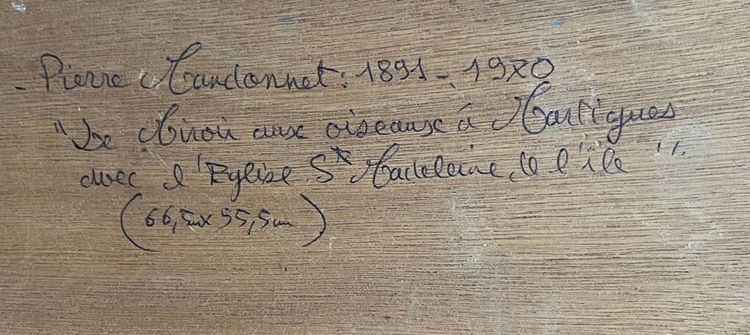 - Pierre Mandonnet : 1891 - 1970
"Le Miroir aux oiseaux à Martigues
avec l'Eglise Ste Madeleine de l'île".
(66,5cm x 55,5cm)